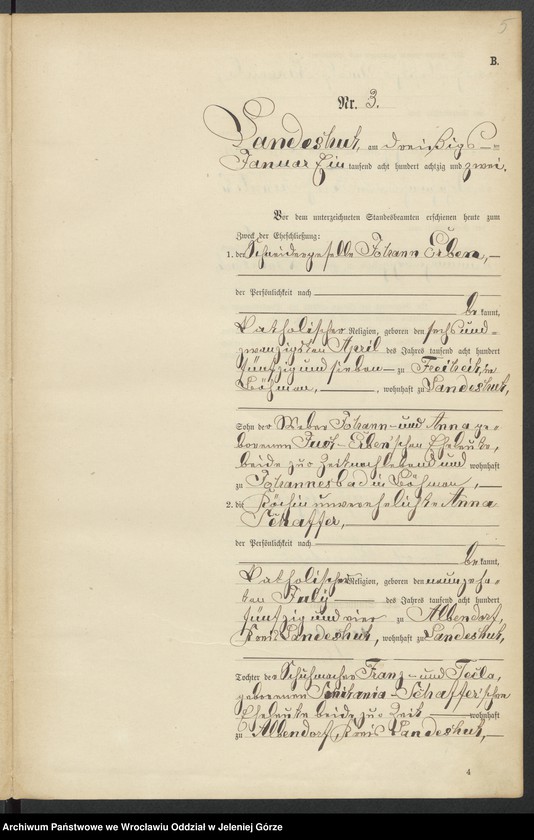 5
B.
Nr. 3.
Landeshut, am dreißigs-
Januar Ein tausend acht hundert achtzig und zwei.
Vor dem unterzeichneten Standesbeamten erschienen heute zum
Zweck der Eheschließung:
1. der Schneidergeselle Johann Erben,
der Persönlichkeit nach
bekannt,
katholischer Religion, geboren den sechsund-
zwanzigsten April des Jahres tausend acht hundert
fünfzig und sieben zu Freiheit, in
Böhmen, wohnhaft zu Landeshut,
Sohn der Weber Johann und Anna ge-
borenen Erben'schen Eheleute,
beide zur Zeit noch lebend und wohnhaft
zu Johannesbad in Böhmen,
2. die Köchin unverehelichte Anna
Schaffer,
der Persönlichkeit nach
bekannt,
katholischer Religion, geboren den neunzehn-
ten July des Jahres tausend acht hundert
fünfzig und vier zu Albendorf,
Kreis Landeshut, wohnhaft zu Landeshut,
Tochter der Schuhmacher Franz und Tecla,
geborenen Schaffer'schen
Eheleute beide zur Zeit wohnhaft
zu Albendorf, Kreis Landeshut,
4
Archiwum Państwowe we Wrocławiu Oddział w Jeleniej Górze